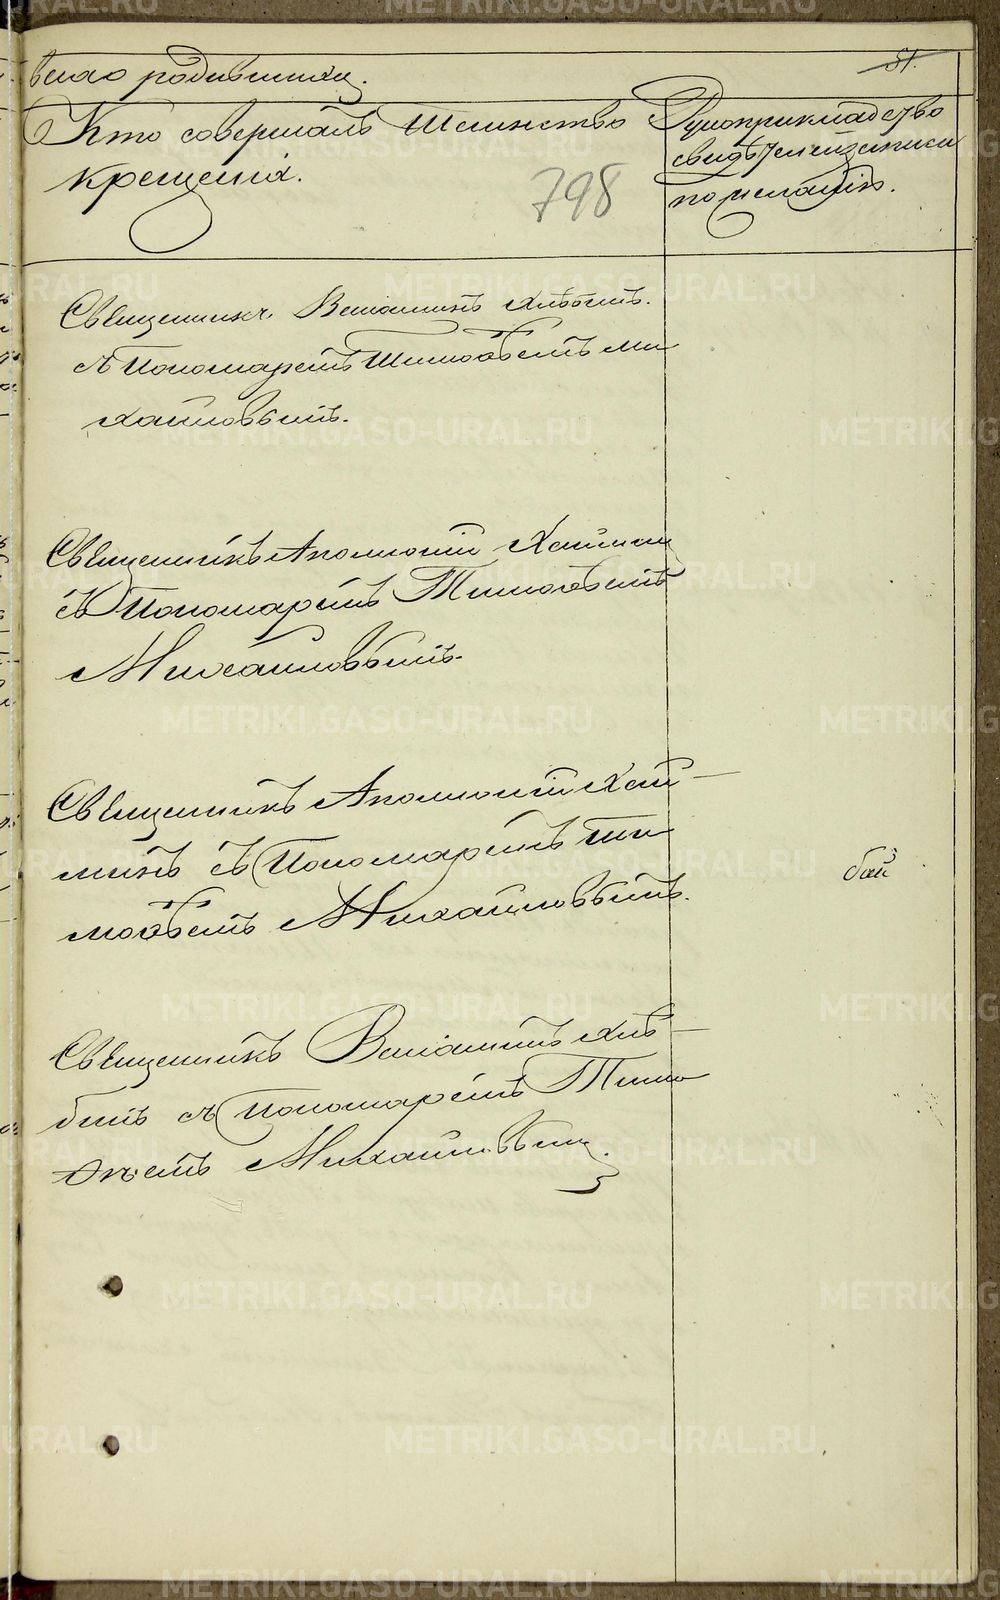 родившихся.
51.
Кто совершалъ таинство
крещенія.
Рукоприкладство
свидѣтелей записи
по желанію.
798
Священникъ Веніаминъ Хлѣбинъ
съ Пономаремъ Тимоѳеемъ Ми
хайловымъ.
Священникъ Аполлоній
съ Пономаремъ Тимоѳеемъ
Михайловымъ.
Священникъ Аполлоній
съ Пономаремъ Ти
моѳеемъ Михайловымъ.
Священникъ Веніаминъ Хлѣ
бинъ съ Пономаремъ Тимо
ѳеемъ Михайловым.
METRIKI.GASO-URAL.RU